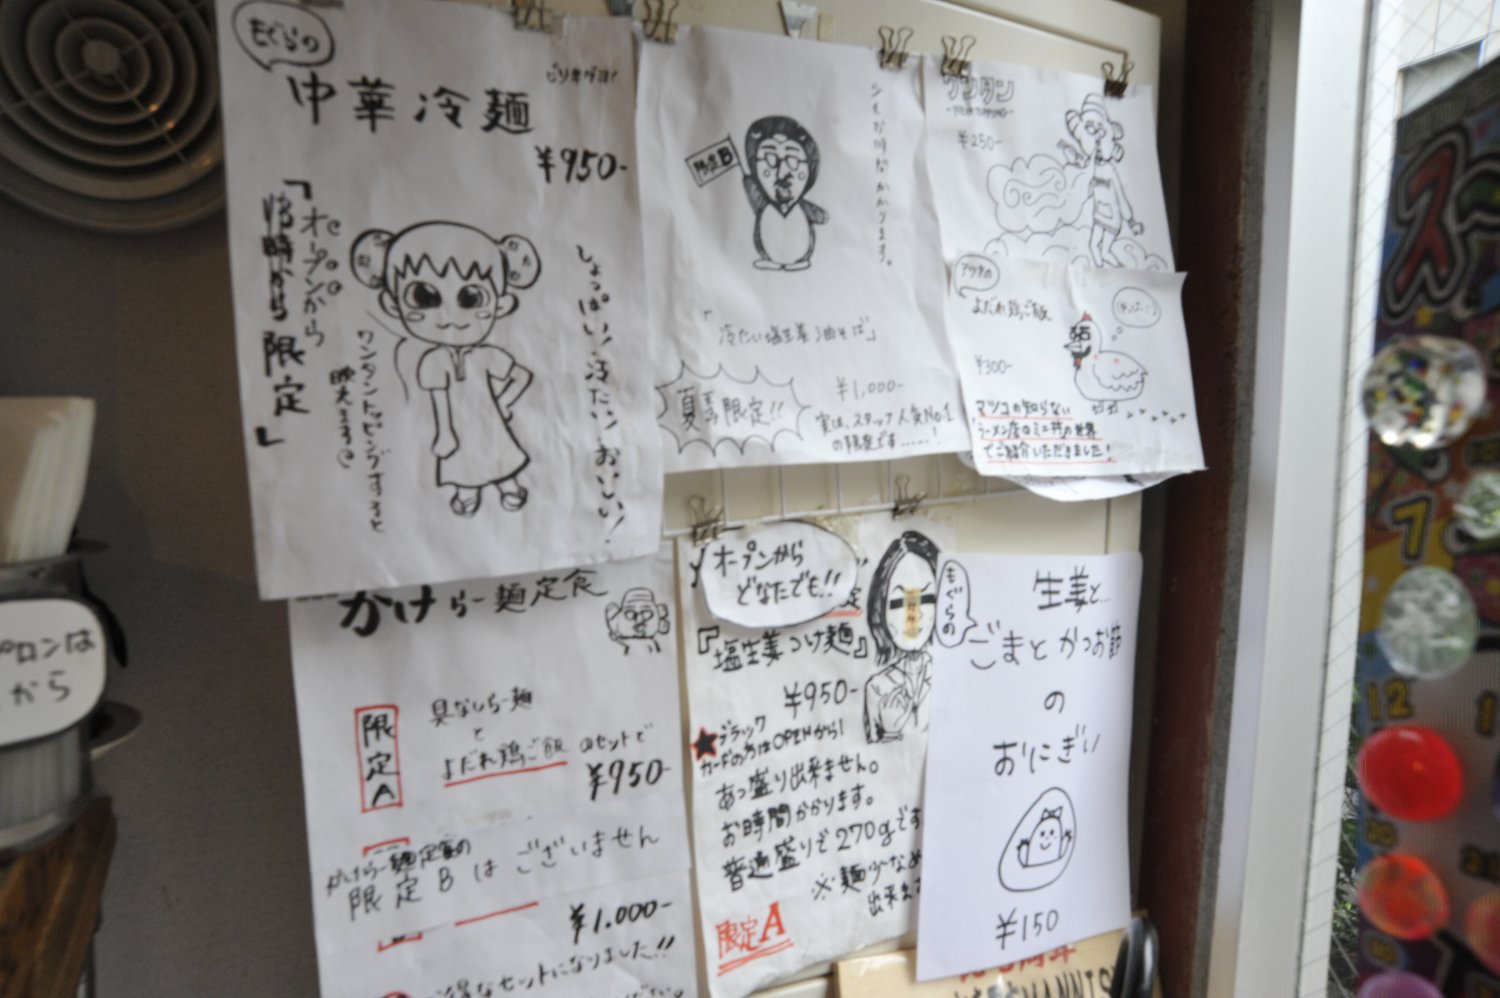 もぐらの
中華冷麺
ピリカグヨ!
¥950-
「オープンから
18時から限定」
ワンタントッピングすると
映えます
しょっぱい!冷たい!おいしい!
少々お時間かかります。
限定B
「冷たい塩生姜油そば」
¥1,000-
夏季限定!!
実は、スタッフ人気No.1
の限定です……!
ワンタン
¥250-
アツオの
よだれ鶏ご飯
¥300-
マツコの知らない
ラーメン店のミニ丼の世界
でご紹介いただきました!
かけらー麺定食
限定A
具なしらー麺
と
よだれ鶏ご飯 のセットで
¥950-
かけらー麺定食の
限定Bはございません
¥1.000-
得なセットになりました!!
オープンから
どなたでも!!
『塩生姜つけ麺』
¥950-
★ブラック
カードの方はOPENから!
あつ盛り出来ません。
お時間かかります。
普通盛りで270gです
※麺少なめ
出来ま
限定A
もぐらの
生姜と…
ごまとかつお節
の
おにぎい
¥150
プロンは
から
ス
7
12